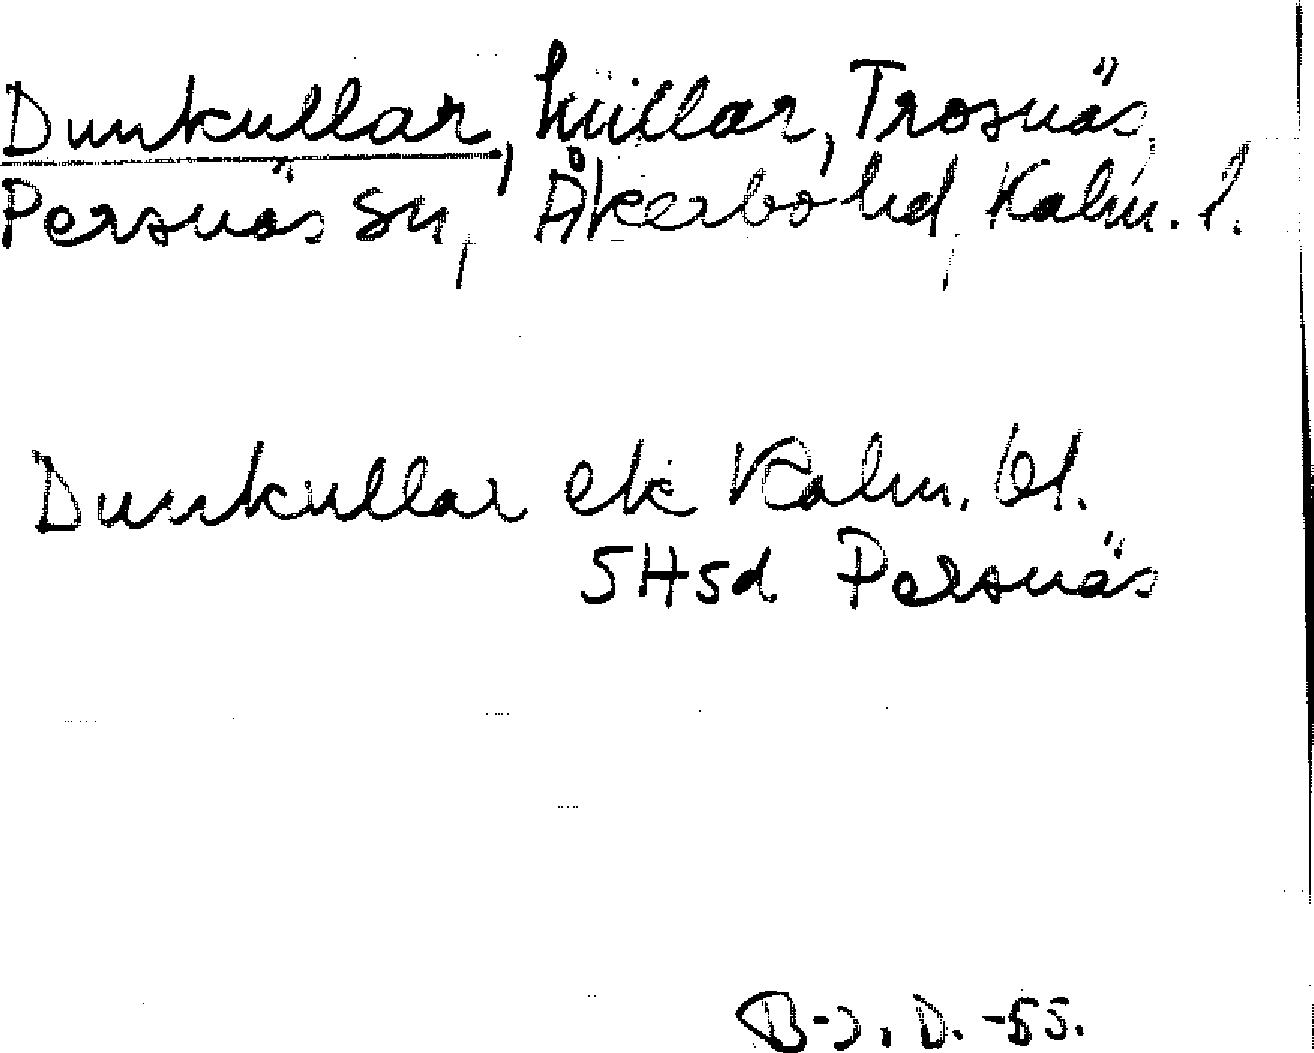 Dunkullar, kullar, Trosnäs
Persnäs sn, Åkerbo hd, Kalm. l.
Dunkullar ek Kalm. 61.
5H5d Persnäs
B-J. D. -55.